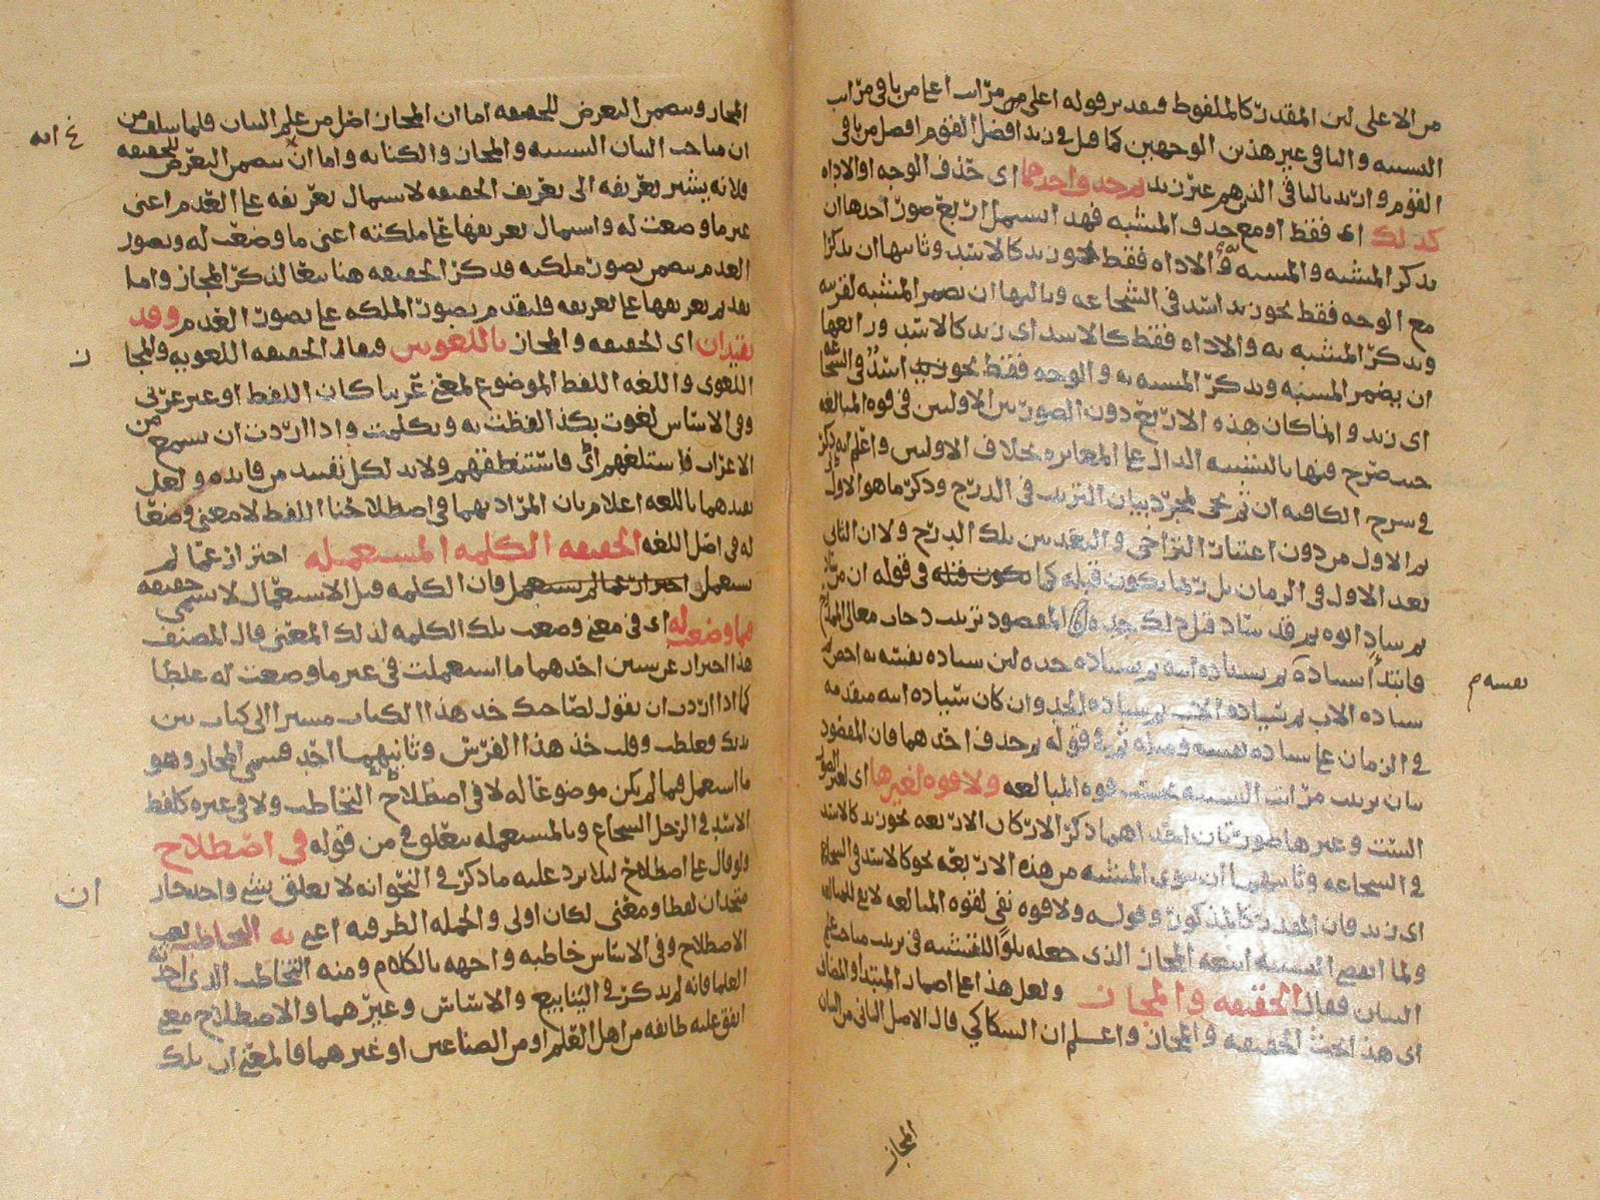 من الاعلى لان المقدر كالملفوظ فتقدير قوله اعلى من مراتب اعلى من باقى مراتب
التشبيه والباقى غير هذين الوجهين كما قيل فى زيد افضل القوم افضل من باقى
القوم واريد بالباقى الذين هم غير زيد ثم حذف احدهما اى حذف الوجه او الاداه
كذلك اى فقط او مع حذف المشبه فهذا يشمل اربع صور احدها ان
يذكر المشبه والمشبه به والاداه فقط نحو زيد كالاسد وثانيها ان يذكرا
مع الوجه فقط نحو زيد اسد فى الشجاعه وثالثها ان يضمر المشبه لقرينه
ويذكر المشبه به والاداه فقط كالاسد اى زيد كالاسد ورابعها
ان يضمر المشبه ويذكر المشبه به والوجه فقط نحو اسد فى الشجاعه
اى زيد وانما كان هذه الاربع دون الصورتين الاوليين فى قوه المبالغه
حيث صرح فيها بالتشبيه الدال على المغايره بخلاف الاوليين واعلم انه ذكر
فى شرح الكافيه ان ثم تجى لمجرد بيان الترتيب فى الدرج وذكر ما هو الاولى
ثم الاول من دون اعتبار التراخى والبعد بين تلك الدرج ولا ان الثانى
بعد الاول فى الزمان بل ربما يكون قبله كما فى قوله ان من ساد
ثم ساد ابوه ثم قد ساد قبل ذلك جده المقصود ترتيب درجات معالى الممدوح
فابتدأ بسيادته ثم بسياده ابيه ثم بسياده جده لان سياده نفسه به اخص ثم
سياده الاب ثم سياده الجد وان كان سياده ابيه متقدمه
فى الزمان على سياده نفسه فقوله ثم حذف احدهما فان المقصود
بيان ترتيب مراتب التشبيه بحسب قوه المبالغه ولا قوه لغيرها اى لغير الصور
الست وغيرها صورتان احداهما ذكر الاركان الاربعه نحو زيد كالاسد
فى الشجاعه وثانيهما ان سوى المشبه من هذه الاربعه نحو كالاسد فى الشجاعه
اى زيد فان المقدر كالمذكور وقوله ولا قوه نفى لقوه المبالغه
ولما انقضى التشبيه اتبعه المجاز الذى جعله تلوا للتشبيه فى ترتيب مباحث علم
البيان فقال الحقيقه والمجاز ولعل هذا على اضمار المبتدأ والمضاف
اى هذا بحث الحقيقه والمجاز واعلم ان السكاكي قال الاصل الثانى من البيان
المجاز
نفسه م
المجاز ويتضمن التعرض للحقيقه اما ان المجاز اصل من علم البيان فلما سلف من
ان مباحث البيان التشبيه والمجاز والكنايه واما انه يتضمن التعرض للحقيقه
فلانه يشير تعريفه الى تعريف الحقيقه لاشتمال تعريفه على العدم اعنى
غير ما وضعت له واشتمال تعريفها على ملكته اعنى ما وضعت له وتصور
العدم يتضمن تصور ملكته فذكر الحقيقه هنا تبعا لذكر المجاز واما
تقديم تعريفها على تعريفه فلتقدم تصور الملكه على تصور العدم وقد
يقيدان اى الحقيقه والمجاز باللغويين فيقال الحقيقه اللغويه والمجاز
اللغوى واللغه اللفظ الموضوع لمعنى عربيا كان اللفظ او غير عربى
وفى الاساس لغوت بكذا لفظت به وتكلمت واذا اردت ان تسمع من
الاعراب فاستلغهم اى فاستنطقهم ولابد لكل تقييد من فايده ولعل
تقييدهما باللغه اعلام بان المراد بهما فى اصطلاحنا اللفظ لا معنى وضعا
له فى اصل اللغه الحقيقه الكلمه المستعمله احتراز عما لم
يستعمل فان الكلمه قبل الاستعمال لا تسمى حقيقه
فيما وضعت له اى فى معنى وضعت تلك الكلمه لذلك المعنى قال المصنف
هذا احتراز عن شيئين احدهما ما استعملت فى غير ما وضعت له غلطا
كما اذا اردت ان تقول لصاحبك خذ هذا الكتاب مشيرا الى كتاب بين
يديك فغلطت وقلت خذ هذا الفرس وثانيهما احد قسمى المجاز وهو
ما استعمل فيما لم يكن موضوعا له لا فى اصطلاح التخاطب ولا فى غيره كلفظ
الاسد فى الرجل الشجاع وبالمستعمله يتعلق فى من قوله فى اصطلاح
ولو قال على اصطلاح لئلا يرد عليه ما ذكر فى النحو انه لا يعلق بشئ واحد جار
متحدان لفظا ومعنى لكان اولى والجمله الظرفيه اعنى به التخاطب نعت
الاصطلاح وفى الاساس خاطبه واجهه بالكلام ومنه التخاطب الذى
العلما فانه لم يذكر فى الينابيع والاساس وغيرهما والاصطلاح معنى
اتفق عليه طايفه من اهل العلم او من الصناعين او غيرهما فالمعنى ان تلك
ان